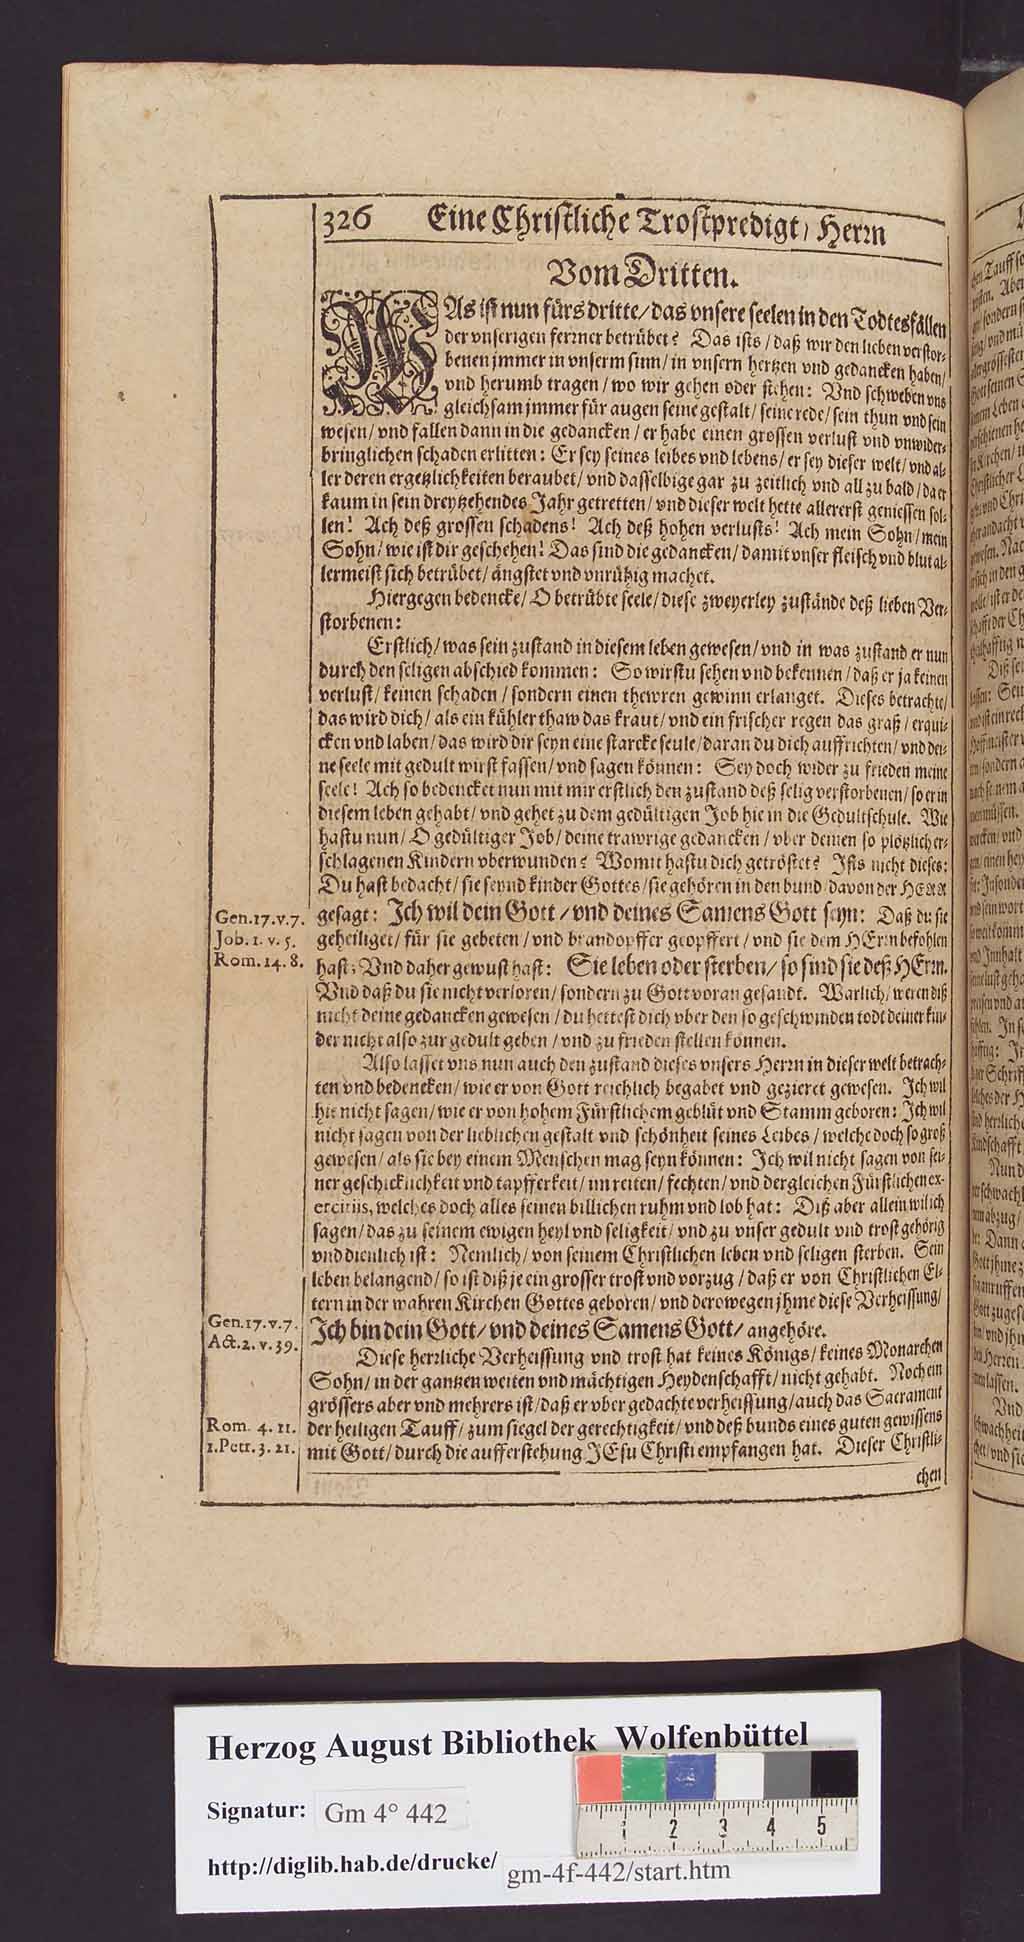 326 Eine Christliche Trostpredigt / Herrn
Vom Dritten.
WAs ist nun fürs dritte / das vnsere seelen in den Todtesfällen
der vnserigen ferrner betrübet? Das ists / daß wir den lieben verstor-
benen jmmer in vnserm sinn / in vnsern hertzen vnd gedancken haben /
vnd herumb tragen / wo wir gehen oder stehen: Vnd schweben vns
gleichsam jmmer für augen seine gestalt / seine rede / sein thun vnd sein
wesen / vnd fallen dann in die gedancken / er habe einen grossen verlust vnd vnwider-
bringlichen schaden erlitten: Er sey seines leibes vnd lebens / er sey dieser welt / vnd al-
ler deren ergetzlichkeiten beraubet / vnd dasselbige gar zu zeitlich vnd all zu bald / da er
kaum in sein dreytzehendes Jahr getretten / vnd dieser welt hette allererst geniessen sol-
len! Ach deß grossen schadens! Ach deß hohen verlusts! Ach mein Sohn / mein
Sohn / wie ist dir geschehen! Das sind die gedancken / damit vnser fleisch vnd blut al-
lermeist sich betrübet / ängstet vnd vnrühig machet.
Hiergegen bedencke / O betrübte seele / diese zweyerley zustände deß lieben Ver-
storbenen:
Erstlich / was sein zustand in diesem leben gewesen / vnd in was zustand er nun
durch den seligen abschied kommen: So wirstu sehen vnd bekennen / daß er ja keinen
verlust / keinen schaden / sondern einen thewren gewinn erlanget. Dieses betrachte /
das wird dich / als ein kühler thaw das kraut / vnd ein frischer regen das graß / erqui-
cken vnd laben / das wird dir seyn eine starcke seule / daran du dich auffrichten / vnd dei-
ne seele mit gedult wirst fassen / vnd sagen können: Sey doch wider zu frieden meine
seele! Ach so bedencket nun mit mir erstlich den zustand deß selig verstorbenen / so er in
diesem leben gehabt / vnd gehet zu dem gedültigen Job hie in die Gedultschule. Wie
hastu nun / O gedültiger Job / deine trawrige gedancken / vber deinen so plötzlich er-
schlagenen Kindern vberwunden? Womit hastu dich getröstet? Ists nicht dieses:
Du hast bedacht / sie seynd kinder Gottes / sie gehören in den bund / davon der HERR
Gen. 17. v. 7. gesagt: Ich wil dein Gott / vnd deines Samens Gott seyn: Daß du sie
Job. 1. v. 5. geheiliget / für sie gebeten / vnd brandopffer geopffert / vnd sie dem HErrn befohlen
Rom. 14. 8. hast; Vnd daher gewust hast: Sie leben oder sterben / so sind sie deß HErrn.
Vnd daß du sie nicht verloren / sondern zu Gott voran gesandt. Warlich / weren diß
nicht deine gedancken gewesen / du hettest dich vber den so geschwinden todt deiner kin-
der nicht also zur gedult geben / vnd zu frieden stellen können.
Also lasset vns nun auch den zustand dieses vnsers Herrn in dieser welt betrach-
ten vnd bedencken / wie er von Gott reichlich begabet vnd gezieret gewesen. Ich wil
hie nicht sagen / wie er von hohem Fürstlichem geblüt vnd Stamm geboren: Ich wil
nicht sagen von der lieblichen gestalt vnd schönheit seines Leibes / welche doch so groß
gewesen / als sie bey einem Menschen mag seyn können: Ich wil nicht sagen von sei-
ner geschicklichkeit vnd tapfferkeit / im reiten / fechten / vnd dergleichen Fürstlichen ex-
ercitijs, welches doch alles seinen billichen ruhm vnd lob hat: Diß aber allein wil ich
sagen / das zu seinem ewigen heyl vnd seligkeit / vnd zu vnser gedult vnd trost gehörig
vnd dienlich ist: Nemlich / von seinem Christlichen leben vnd seligen sterben. Sein
leben belangend / so ist diß je ein grosser trost vnd vorzug / daß er von Christlichen El-
tern in der wahren Kirchen Gottes geboren / vnd derowegen jhme diese Verheissung /
Gen. 17. v. 7. Ich bin dein Gott / vnd deines Samens Gott / angehöre.
Act. 2. v. 39.
Diese herrliche Verheissung vnd trost hat keines Königs / keines Monarchen
Sohn / in der gantzen weiten vnd mächtigen Heydenschafft / nicht gehabt. Noch ein
grössers aber vnd mehrers ist / daß er vber gedachte verheissung / auch das Sacrament
Rom. 4. 11. der heiligen Tauff / zum siegel der gerechtigkeit / vnd deß bunds eines guten gewissens
1. Petr. 3. 21. mit Gott / durch die aufferstehung JEsu Christi empfangen hat. Dieser Christli-
chen
Herzog August Bibliothek Wolfenbüttel
Signatur: Gm 4° 442
http://diglib.hab.de/drucke/ gm-4f-442/start.htm
1 2 3 4 5